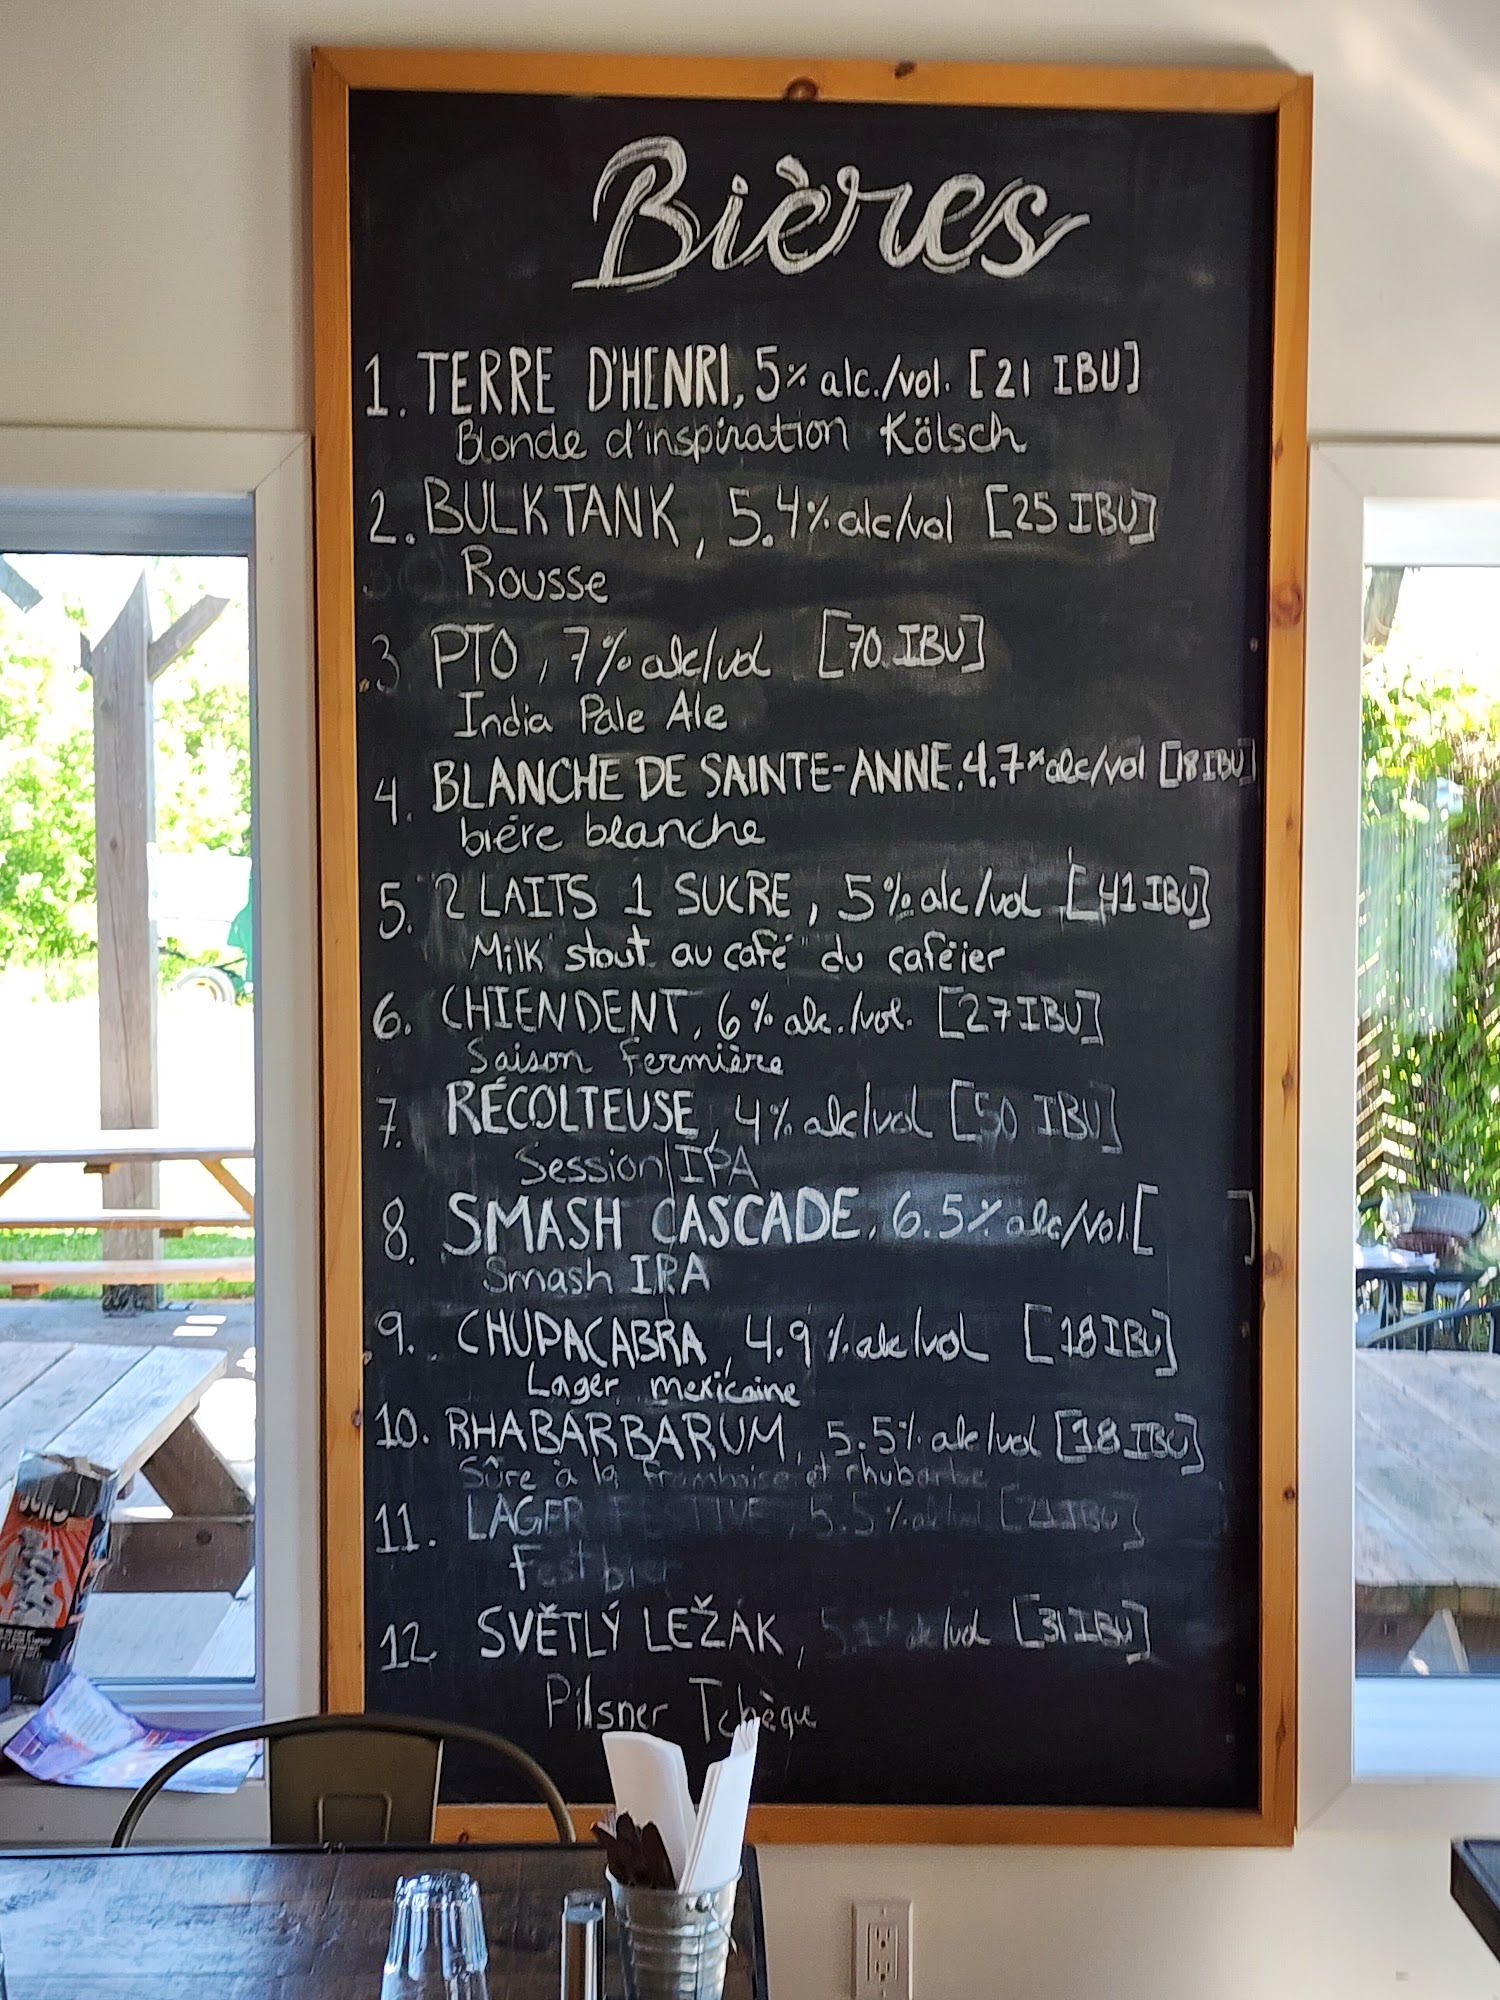 Bières
1. TERRE D'HENRI, 5% alc./vol. [21 IBU]
Blonde d'inspiration Kölsch
2. BULKTANK, 5.4% alc/vol [25 IBU]
Rousse
3 PTO, 7% alc/vol [70 IBU]
India Pale Ale
4. BLANCHE DE SAINTE-ANNE, 4.7% alc/vol [18 IBU]
bière blanche
5. 2 LAITS 1 SUCRE, 5% alc/vol [41 IBU]
Milk stout au café du caféier
6. CHIENDENT, 6% alc./vol. [27 IBU]
Saison Fermière
7. RÉCOLTEUSE, 4% alc/vol [50 IBU]
Session IPA
8. SMASH CASCADE, 6.5% alc/vol. [ ]
Smash IPA
9. CHUPACABRA, 4.9% alc/vol [18 IBU]
Lager mexicaine
10. RHABARBARUM, 5.5% alc/vol [18 IBU]
Sûre à la framboise et rhubarbe
11. LAGER 5.5% alc/vol [21 IBU]
12 SVĚTLÝ LEŽÁK, alc/vol [31 IBU]
Pilsner Tchèque